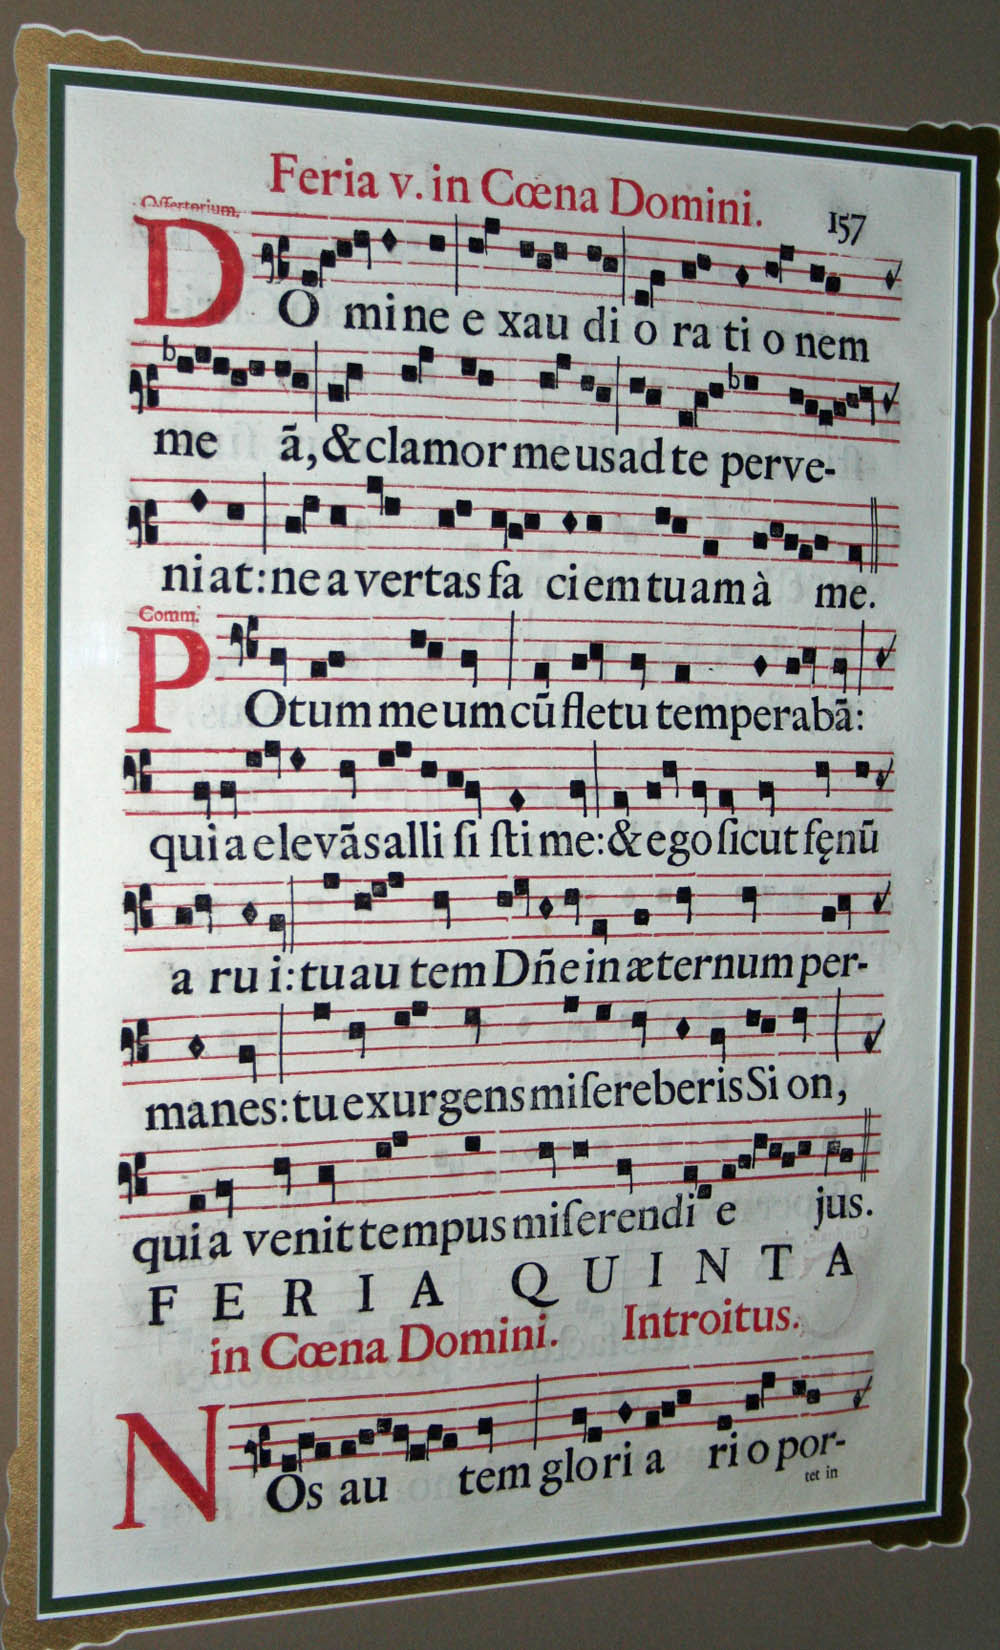 Feria v. in Cœna Domini.
157
Offertorium.
DO mine e xau di o ra ti o nem
me ã, & clamor me us ad te perve-
ni at: ne a vertas fa ciem tu am à me.
Comm.
POtum meum cũ fletu temperabã:
qui a elevãs alli ſi ſti me: & ego ſicut fęnũ
a ru i: tu au tem Dñe in æternum per-
manes: tu exurgens miſereberis Si on,
qui a venit tempus miſerendi e jus.
FERIA QUINTA
in Cœna Domini. Introitus.
NOs au tem glo ri a ri o por-
tet in